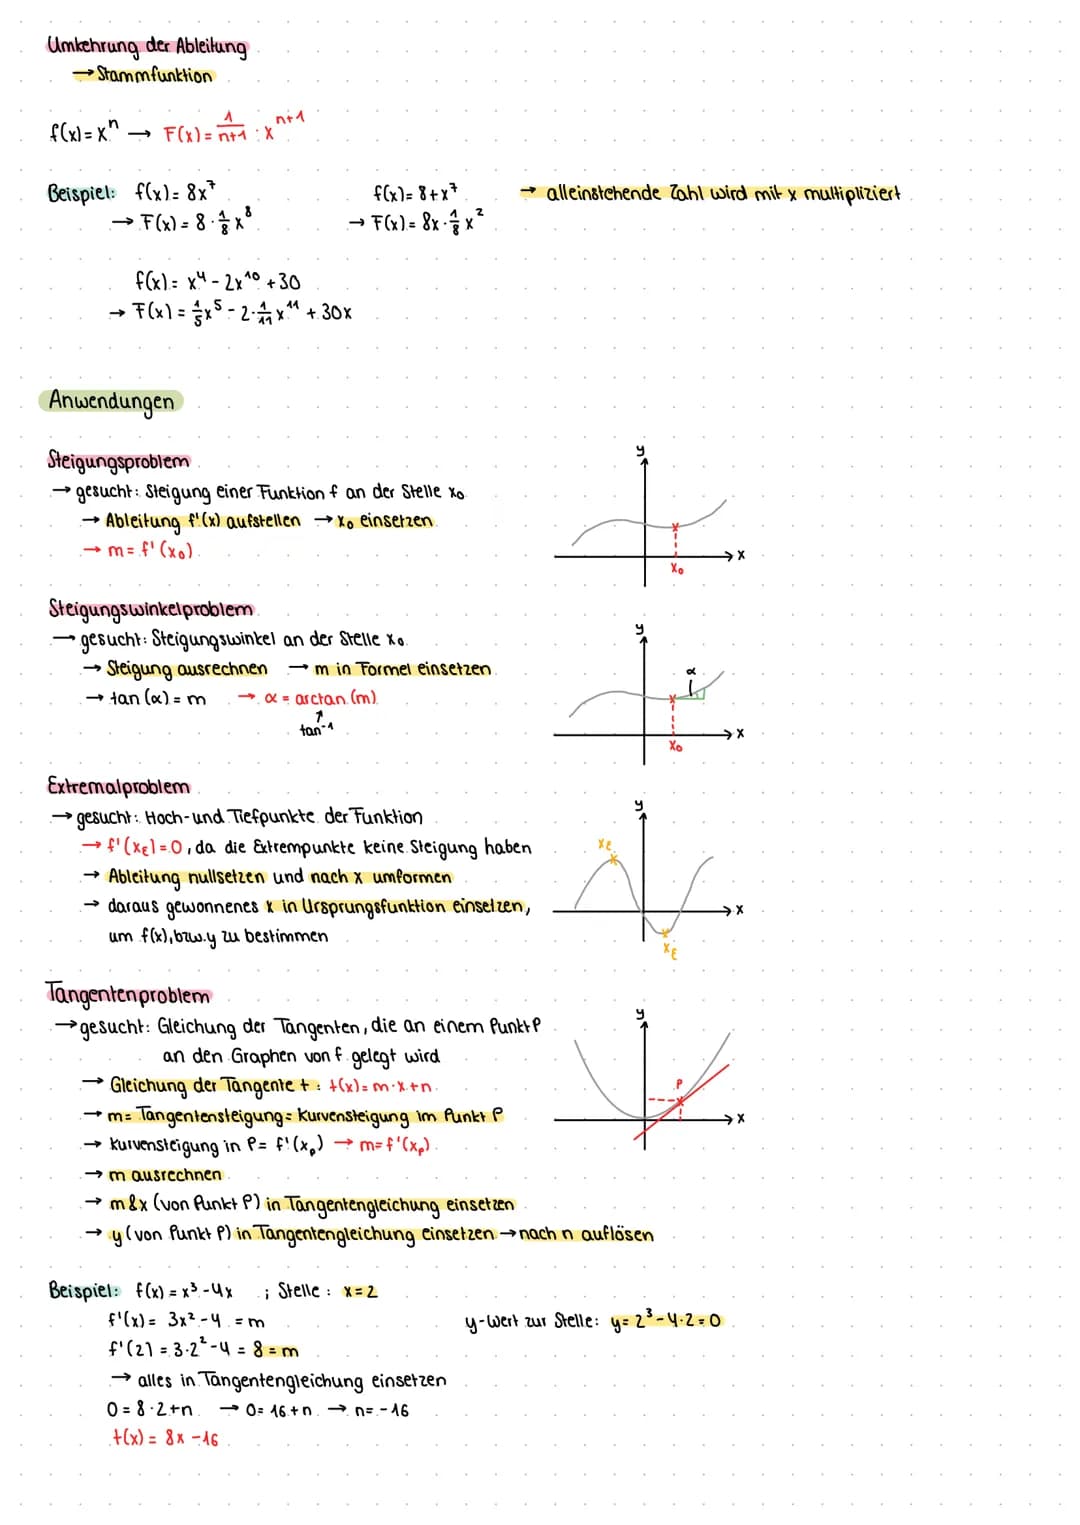 Umkehrung der Ableitung
→ Stammfunktion
f(x) = xⁿ → F(x) = 1/(n+1) · xⁿ⁺¹
Beispiel: f(x) = 8x⁷
→ F(x) = 8 · 1/8 x⁸
f(x) = 8 + x⁷ → alleinstehende Zahl wird mit x multipliziert
→ F(x) = 8x · 1/8 x²
f(x) = x⁴ - 2x¹⁰ + 30
→ F(x) = 1/5 x⁵ - 2 · 1/11 x¹¹ + 30x
Anwendungen
Steigungsproblem
→ gesucht: Steigung einer Funktion f an der Stelle x₀
→ Ableitung f'(x) aufstellen → x₀ einsetzen
→ m = f'(x₀)
y
x
x₀
Steigungswinkelproblem
→ gesucht: Steigungswinkel an der Stelle x₀
→ Steigung ausrechnen → m in Formel einsetzen
→ tan (α) = m → α = arctan (m)
↑
tan⁻¹
y
α
x
x₀
Extremalproblem
→ gesucht: Hoch- und Tiefpunkte der Funktion
→ f'(x_E) = 0, da die Extrempunkte keine Steigung haben
→ Ableitung nullsetzen und nach x umformen
→ daraus gewonnenes x in Ursprungsfunktion einsetzen,
um f(x), bzw. y zu bestimmen
y
x_E
x
x_E
Tangentenproblem
→ gesucht: Gleichung der Tangenten, die an einem Punkt P
an den Graphen von f gelegt wird
→ Gleichung der Tangente t: t(x) = m·x+n
→ m = Tangentensteigung = Kurvensteigung im Punkt P
→ Kurvensteigung in P = f'(xₚ) → m = f'(xₚ)
→ m ausrechnen
→ m & x (von Punkt P) in Tangentengleichung einsetzen
→ y (von Punkt P) in Tangentengleichung einsetzen → nach n auflösen
y
P
x
Beispiel: f(x) = x³ - 4x ; Stelle: x = 2
f'(x) = 3x² - 4 = m
y-Wert zur Stelle: y = 2³ - 4·2 = 0
f'(2) = 3·2² - 4 = 8 = m
→ alles in Tangentengleichung einsetzen
0 = 8·2+n → 0 = 16+n → n = -16
t(x) = 8x - 16